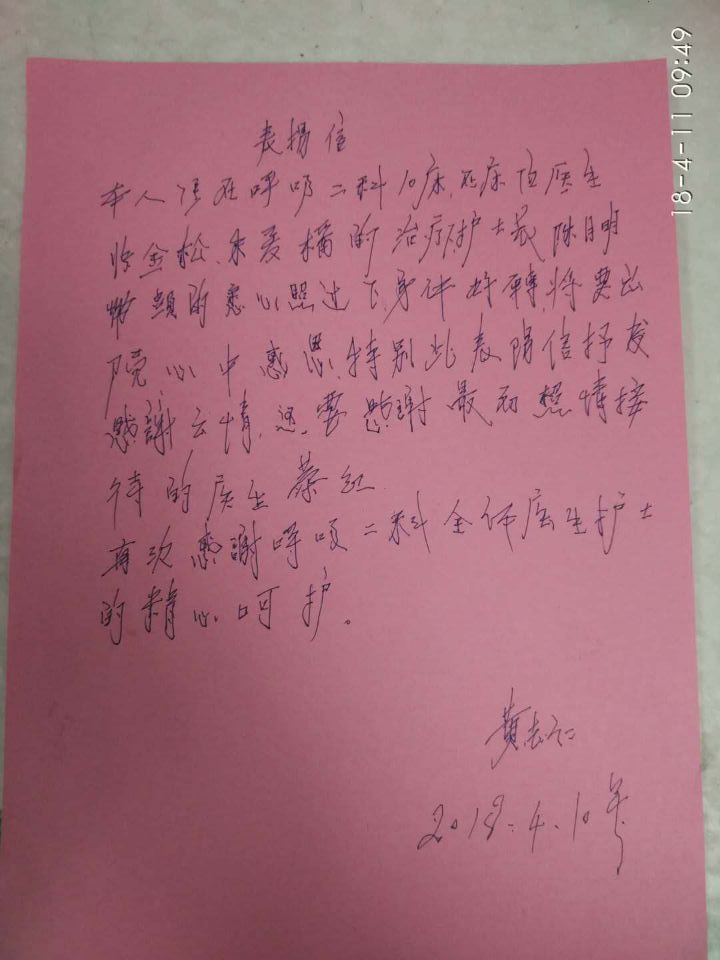 表揚信
本人住在呼吸二科10床,在床位医生
金松、朱爱 的治疗,护士长陈明
带頭的悉心照 下,身体好轉,将要出
院心中感恩,特别 表 信抒发
感謝之情,还要感謝最初热情接
待的医生蔡红.
再次感謝呼吸二科全体医生护士
的精心呵护。
黄志仁
2018.4.10号
18-4-11 09:49